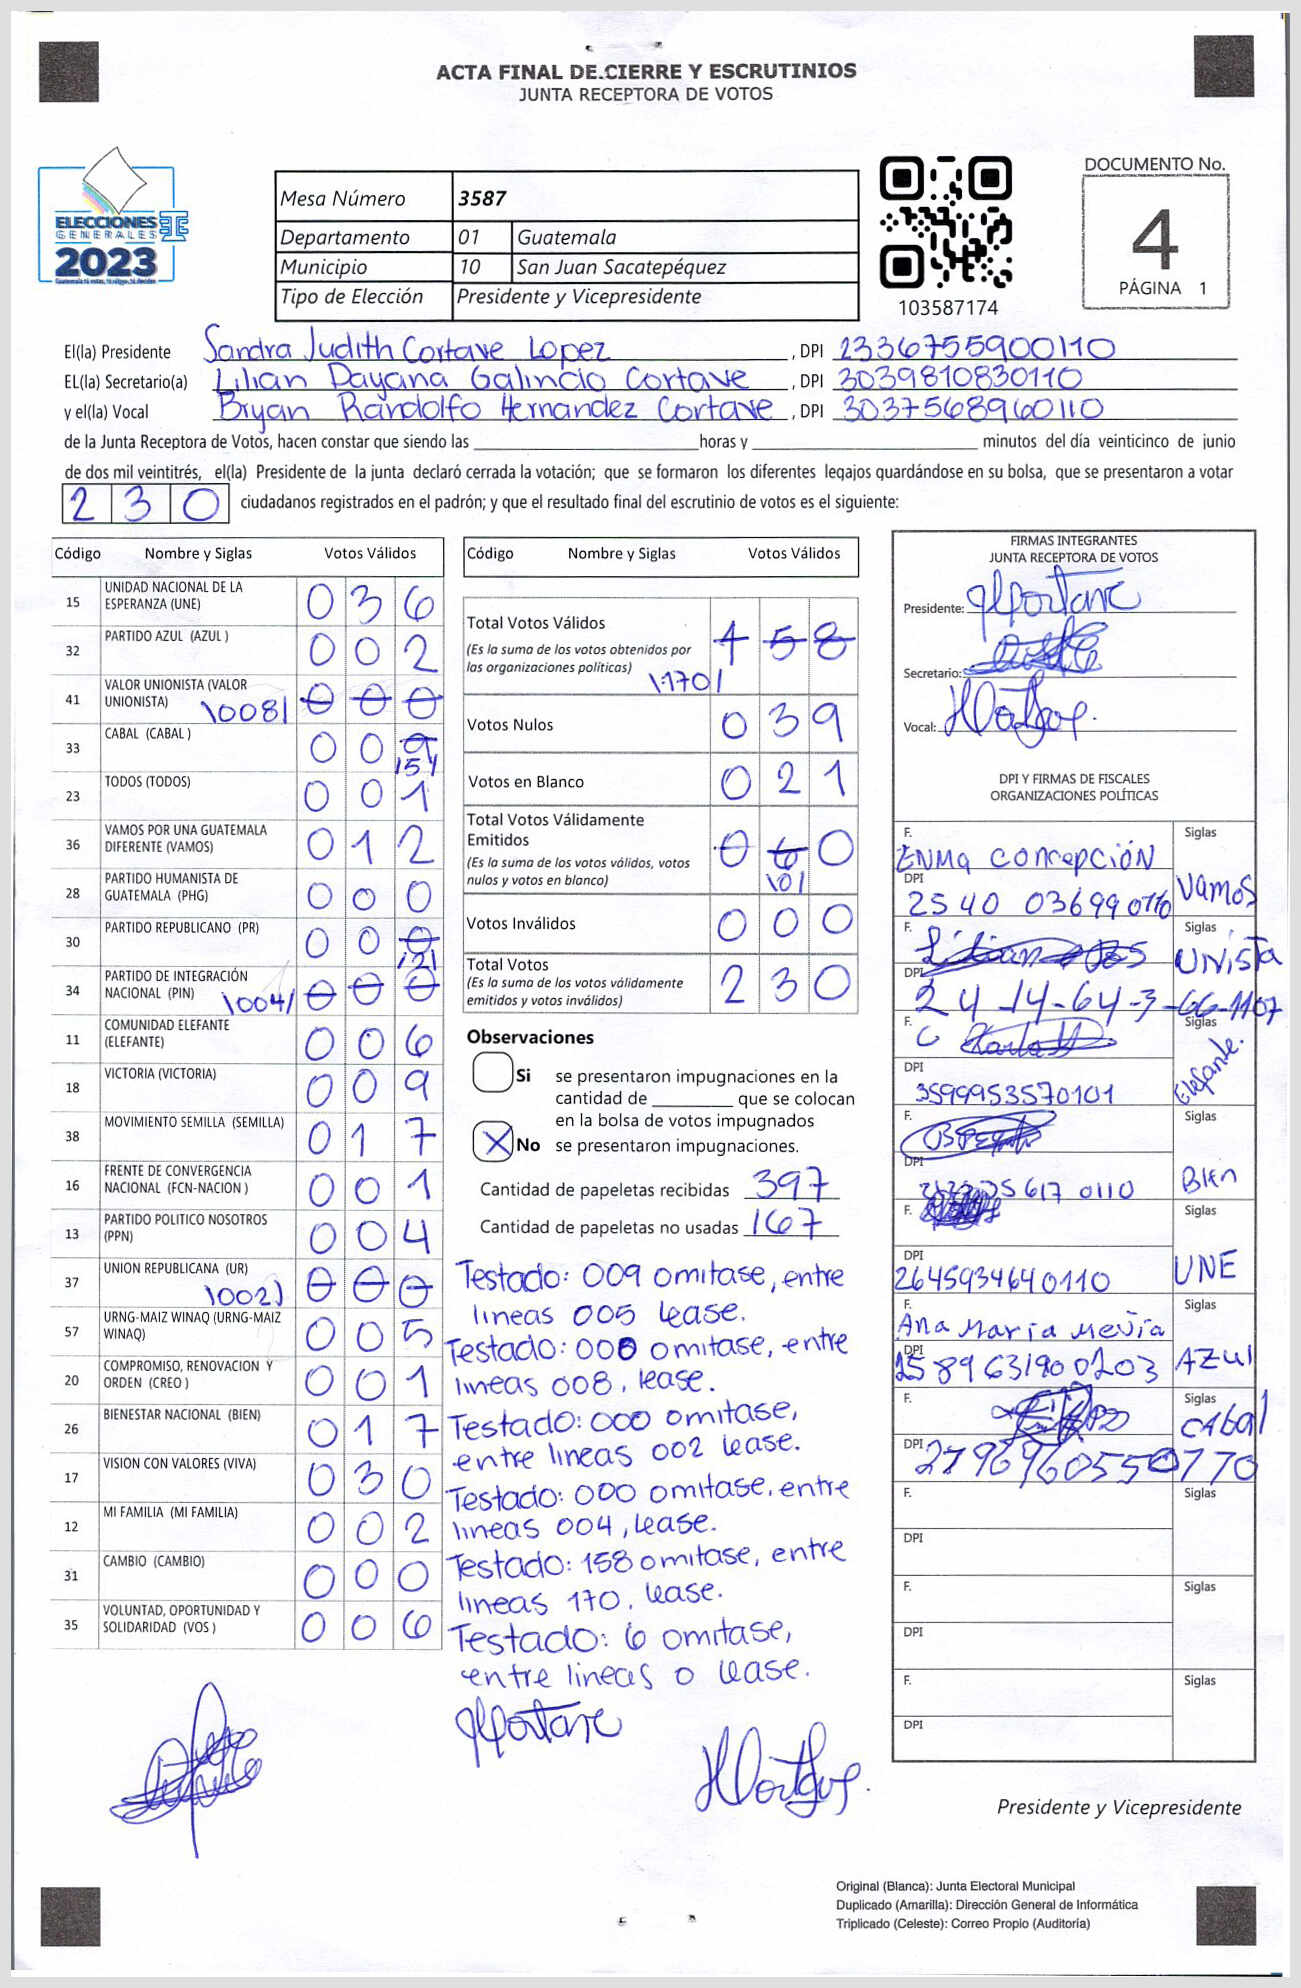 ACTA FINAL DE CIERRE Y ESCRUTINIOS
JUNTA RECEPTORA DE VOTOS
ELECCIONES
GENERALES
2023
Mesa Número 3587
Departamento 01 Guatemala
Municipio 10 San Juan Sacatepéquez
Tipo de Elección Presidente y Vicepresidente
103587174
DOCUMENTO No.
4
PÁGINA 1
El(la) Presidente Sandra Judith Cortave Lopez, DPI 2336755900110
EL(la) Secretario(a) Lilian Dayana Galindo Cortave, DPI 3039810830110
y el(la) Vocal Bryan Randolfo Hernandez Cortave, DPI 3037568960110
de la Junta Receptora de Votos, hacen constar que siendo las horas y minutos del día veinticinco de junio
de dos mil veintitrés, el(la) Presidente de la junta declaró cerrada la votación; que se formaron los diferentes legajos guardándose en su bolsa, que se presentaron a votar
230 ciudadanos registrados en el padrón; y que el resultado final del escrutinio de votos es el siguiente:
Código Nombre y Siglas Votos Válidos
15 UNIDAD NACIONAL DE LA ESPERANZA (UNE) 036
32 PARTIDO AZUL (AZUL ) 002
41 VALOR UNIONISTA (VALOR UNIONISTA) \008/ 000
33 CABAL (CABAL ) 009 /5/
23 TODOS (TODOS) 001
36 VAMOS POR UNA GUATEMALA DIFERENTE (VAMOS) 012
28 PARTIDO HUMANISTA DE GUATEMALA (PHG) 000
30 PARTIDO REPUBLICANO (PR) 000 /2/
34 PARTIDO DE INTEGRACIÓN NACIONAL (PIN) \004/ 000
11 COMUNIDAD ELEFANTE (ELEFANTE) 006
18 VICTORIA (VICTORIA) 009
38 MOVIMIENTO SEMILLA (SEMILLA) 017
16 FRENTE DE CONVERGENCIA NACIONAL (FCN-NACION ) 001
13 PARTIDO POLITICO NOSOTROS (PPN) 004
37 UNION REPUBLICANA (UR) \002) 000
57 URNG-MAIZ WINAQ (URNG-MAIZ WINAQ) 005
20 COMPROMISO, RENOVACION Y ORDEN (CREO ) 001
26 BIENESTAR NACIONAL (BIEN) 017
17 VISION CON VALORES (VIVA) 030
12 MI FAMILIA (MI FAMILIA) 002
31 CAMBIO (CAMBIO) 000
35 VOLUNTAD, OPORTUNIDAD Y SOLIDARIDAD (VOS ) 006
Código Nombre y Siglas Votos Válidos
Total Votos Válidos 158
(Es la suma de los votos obtenidos por
las organizaciones políticas) \170/
Votos Nulos 039
Votos en Blanco 021
Total Votos Válidamente
Emitidos 060
(Es la suma de los votos válidos, votos
nulos y votos en blanco) \0/
Votos Inválidos 000
Total Votos 230
(Es la suma de los votos válidamente
emitidos y votos inválidos)
Observaciones
Si se presentaron impugnaciones en la
cantidad de que se colocan
en la bolsa de votos impugnados
X No se presentaron impugnaciones.
Cantidad de papeletas recibidas 397
Cantidad de papeletas no usadas 167
Testado: 009 omitase, entre
lineas 005 lease.
Testado: 000 omitase, entre
lineas 008, lease.
Testado: 000 omitase,
entre lineas 002 lease.
Testado: 000 omitase, entre
lineas 004, lease.
Testado: 158 omitase, entre
lineas 170, lease.
Testado: 6 omitase,
entre lineas 0 lease.
FIRMAS INTEGRANTES
JUNTA RECEPTORA DE VOTOS
Presidente:
Secretario:
Vocal:
DPI Y FIRMAS DE FISCALES
ORGANIZACIONES POLÍTICAS
F. Enma Concepción Siglas
DPI 2540 03699 0110 Vamos
F. Siglas UNISTA
DPI 24-14-64-3-66-1107
F. Siglas
DPI 3599953570101 Elefante.
F. Siglas
DPI 617 0110 BIEN
F. Siglas
DPI 2645934640110 UNE
F. Ana Maria Mejia Siglas
DPI 2589631900203 AZUL
F. Siglas CABAl
DPI 2796960550770
F. Siglas
DPI
F. Siglas
DPI
F. Siglas
DPI
Presidente y Vicepresidente
Original (Blanca): Junta Electoral Municipal
Duplicado (Amarilla): Dirección General de Informática
Triplicado (Celeste): Correo Propio (Auditoría)